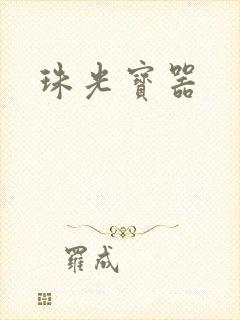 珠光寶器
羅成